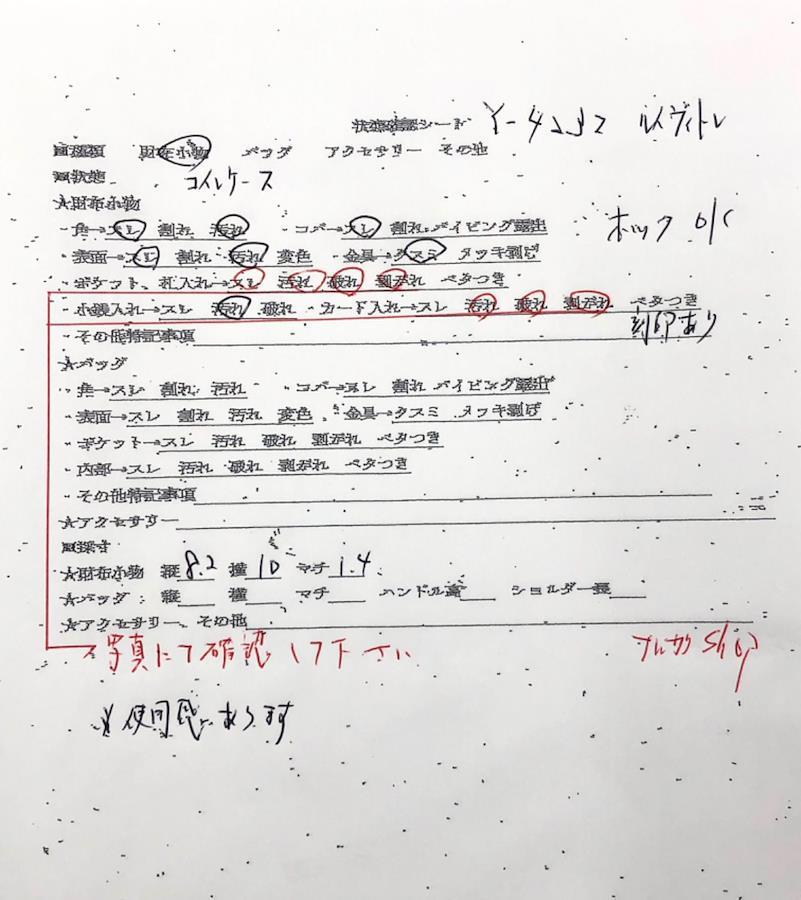 状態確認シート Y-4232 ルイヴィトン
■種類 財布小物 バッグ アクセサリー その他
■状態 コインケース
★財布小物
・角→スレ 割れ 汚れ ・コバ→スレ 割れ パイピング露出 ホック O/C
・表面→スレ 割れ 汚れ 変色 ・金具→クスミ メッキ剥げ
・ポケット、札入れ→スレ 汚れ 破れ 剥がれ ベタつき
・小銭入れ→スレ 汚れ 破れ ・カード入れ→スレ 汚れ 破れ 剥がれ ベタつき
・その他特記事項 刻印あり
★バッグ
・角→スレ 割れ 汚れ ・コバ→スレ 割れ パイピング露出
・表面→スレ 割れ 汚れ 変色 ・金具→クスミ メッキ剥げ
・ポケット→スレ 汚れ 破れ 剥がれ ベタつき
・内部→スレ 汚れ 破れ 剥がれ ベタつき
・その他特記事項
★アクセサリー
■採寸
★財布小物 縦8.2 横10 マチ1.4
★バッグ：縦 横 マチ ハンドル高 ショルダー長
★アクセサリー、その他
写真にて確認して下さい shop
※使用感あります